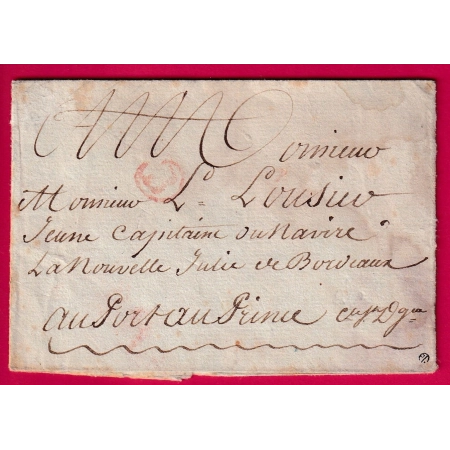 Monsieur
Monsieur Ld. Lousieu
Jeune Capitaine du Navire
La Nouvelle Julie de Bordeaux
au Port au Prince